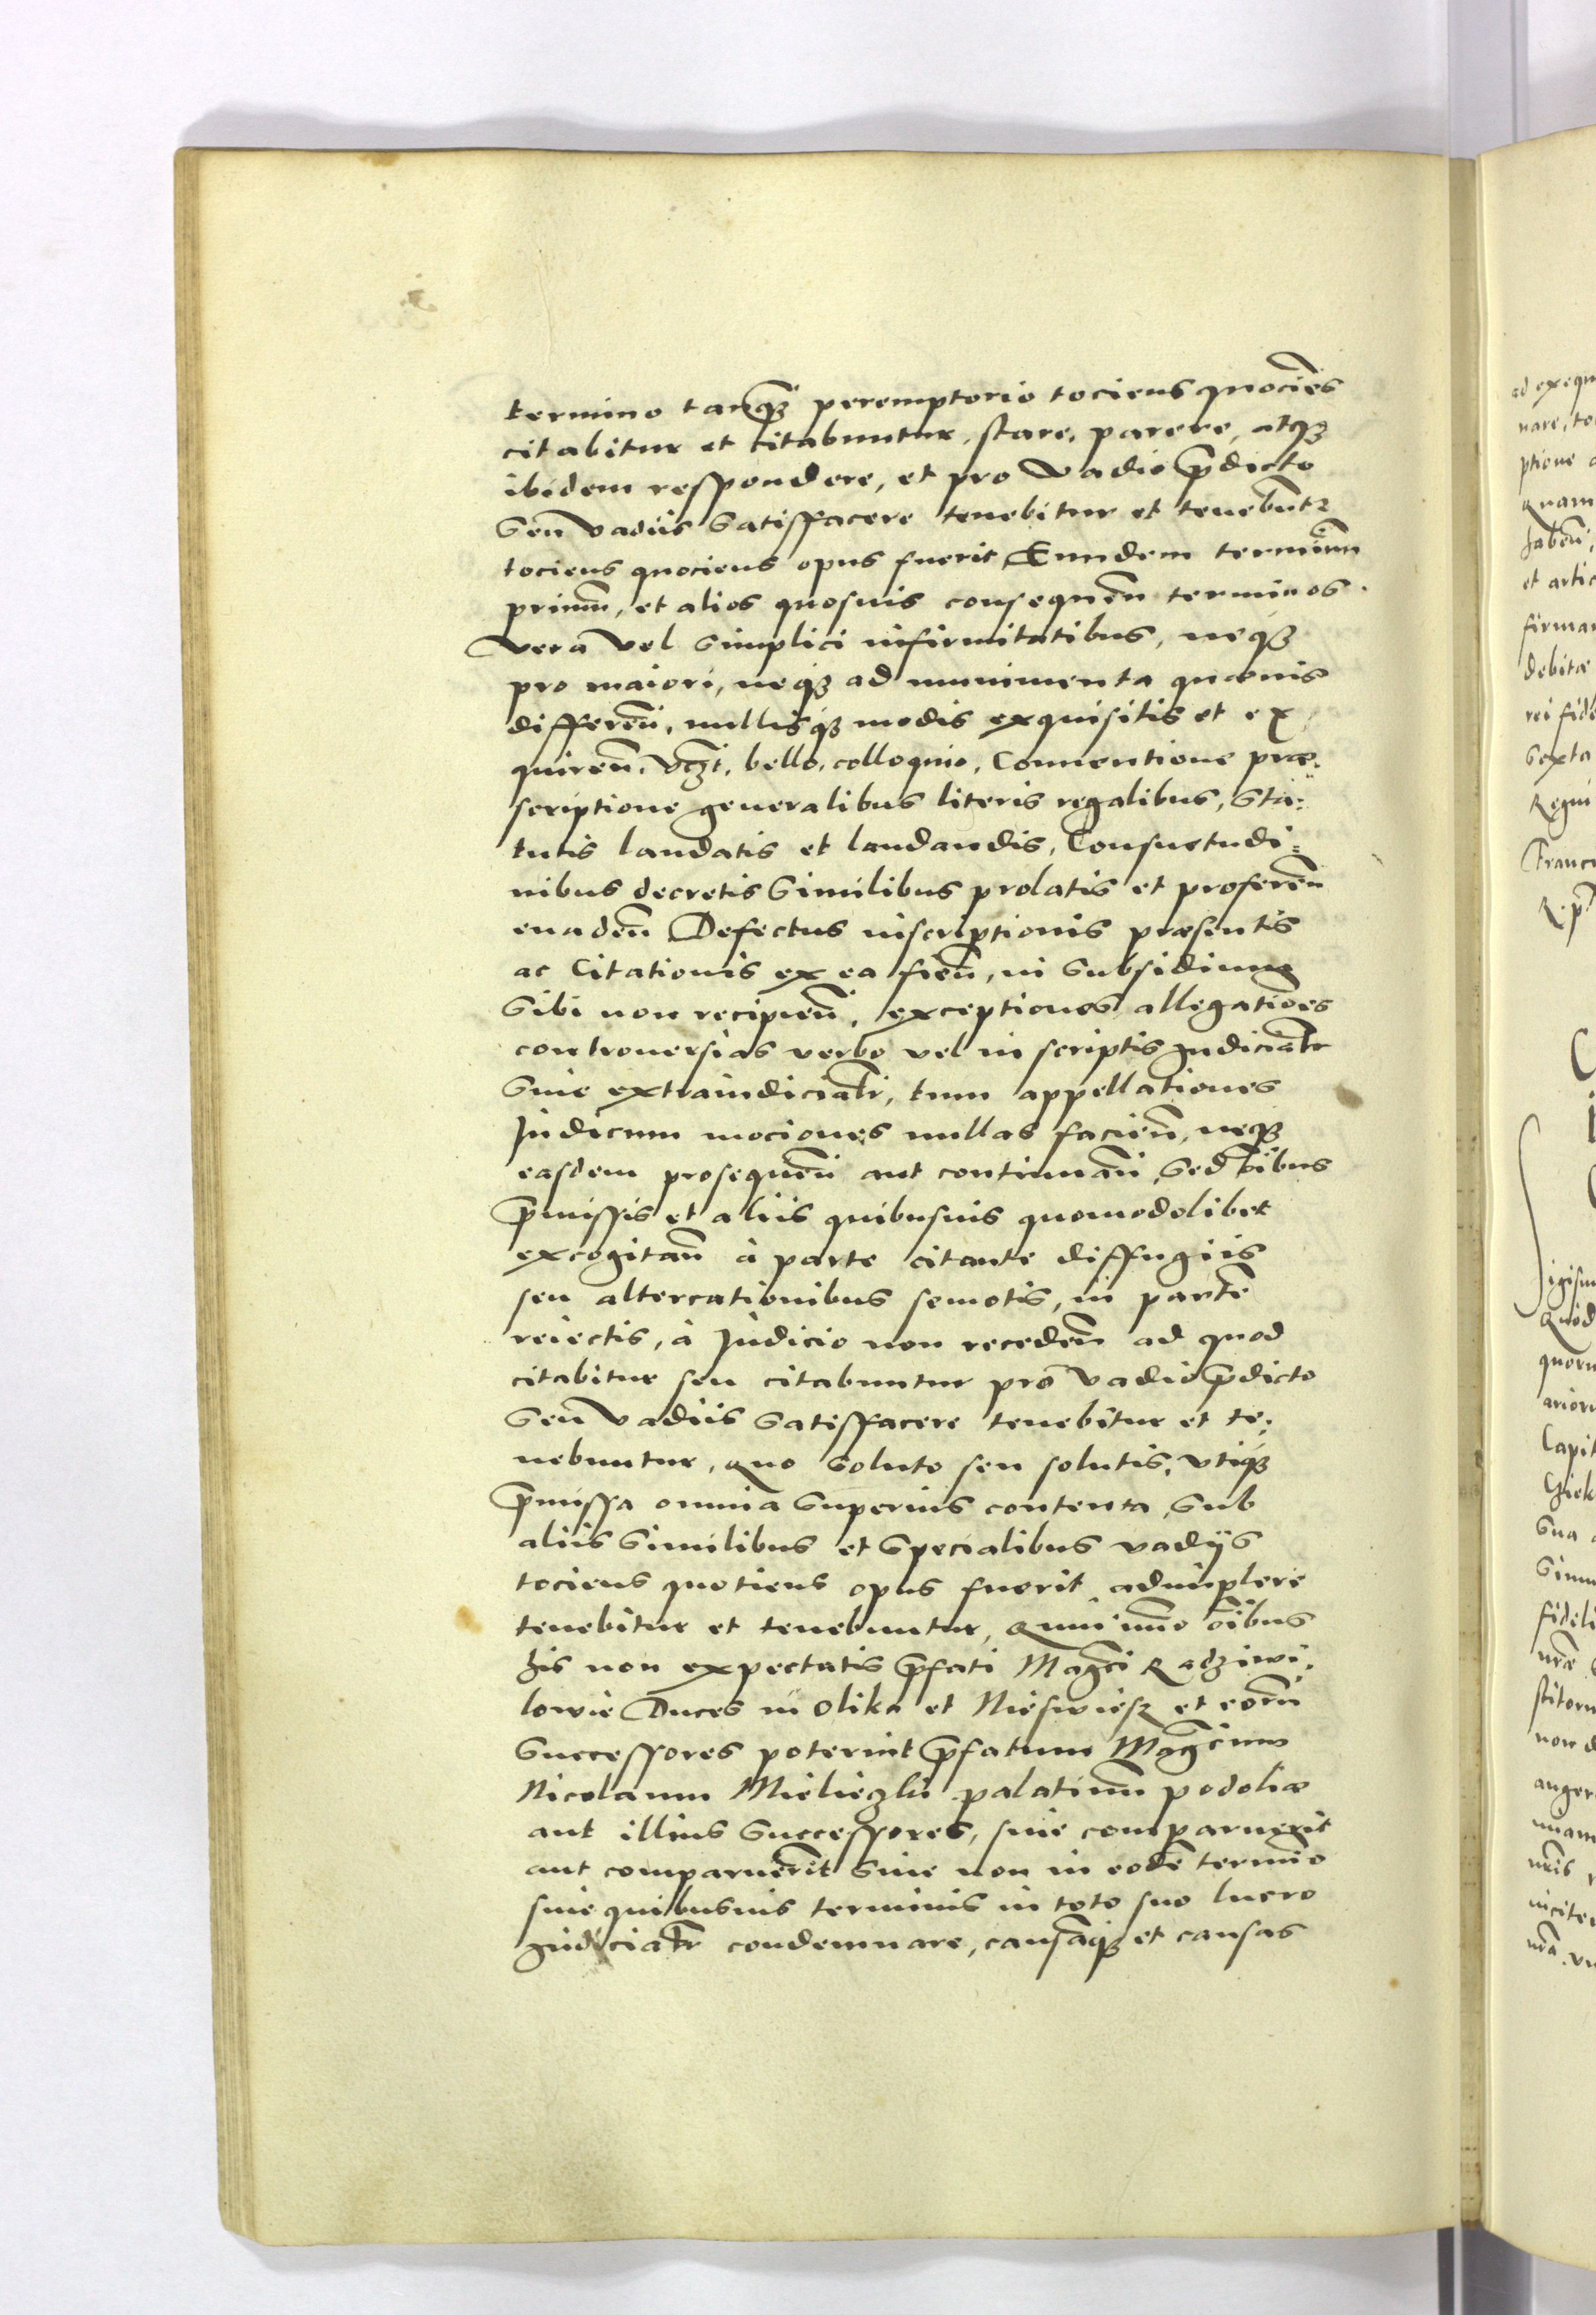 termino tanq̃ꝫ peremptorio tociens quociẽs
citabitur et citabuntur, stare, parere, atqꝫ
ibidem respondere, et pro Vadio p̃dicto
seu Vadiis satisfacere tenebitur et tenebũtr
tociens quociens opus fuerit Eundem termĩum
primũ, et alios quosuis consequeñ terminos.
Vera vel simplici infirmitatibus, neqꝫ
pro maiori, neqꝫ ad munimenta quæuis
differeñ, nullisqꝫ modis exquisitis et ex
quireñ, vꝫt, bello, colloquio, Conuentione præ:
scriptione generalibus literis regalibus, sta:
tutis laudatis et laudandis, Consuetudi:
nibus decretis similibus prolatis et profereñ
euadeñ Defectus inscriptionis præsentis
ac Citationis ex ea fieñ, in subsidium
sibi non recipieñ, exceptiones allegatiões
controuersias verbo vel in scriptis Judiciałr
siue extraiudiciałr, tum appellationes
Judicum mociones nullas facieñ, neqꝫ
easdem prosequeñ aut continuañ, sed oĩbus
p̃missis et aliis quibusuis quomodolibet
excogitañ à parte citante diffugiis
seu altercationibus semotis, in partẽ
reiectis, à Judicio non recedeñ ad quod
citabitur seu citabuntur pro Vadio p̃dicto
seu Vadiis satisfacere tenebitur et te:
nebuntur, Quo soluto seu solutis, vtiqꝫ
p̃missa omnia superius contenta, sub
aliis similibus et specialibus vadijs
tociens quotiens opus fuerit adimplere
tenebitur et tenebuntur, Quinimo oĩbus
his non expectatis p̃fati Mag̃ci Radziwi:
lowie Duces in Olika et Nieswiesz et eorũ
successores poterint p̃fatum Mag̃cum
Nicolaum Mieliezki palatinũ podoliæ
aut illius successores, siue comparuerit
aut comparuerĩt siue non in eodẽ termĩo
siue quibusuis terminis in toto suo lucro
Judiciałr condemnare, causãqꝫ et causas
ad exequ
nare, to
ptione
Quam
haben,
et artic
firma
debitæ
rei fide
sexta
Regni
Franci
igism
Quod
quoru
arior
Capit
sua
fideli
nræ
non d
anger
nram